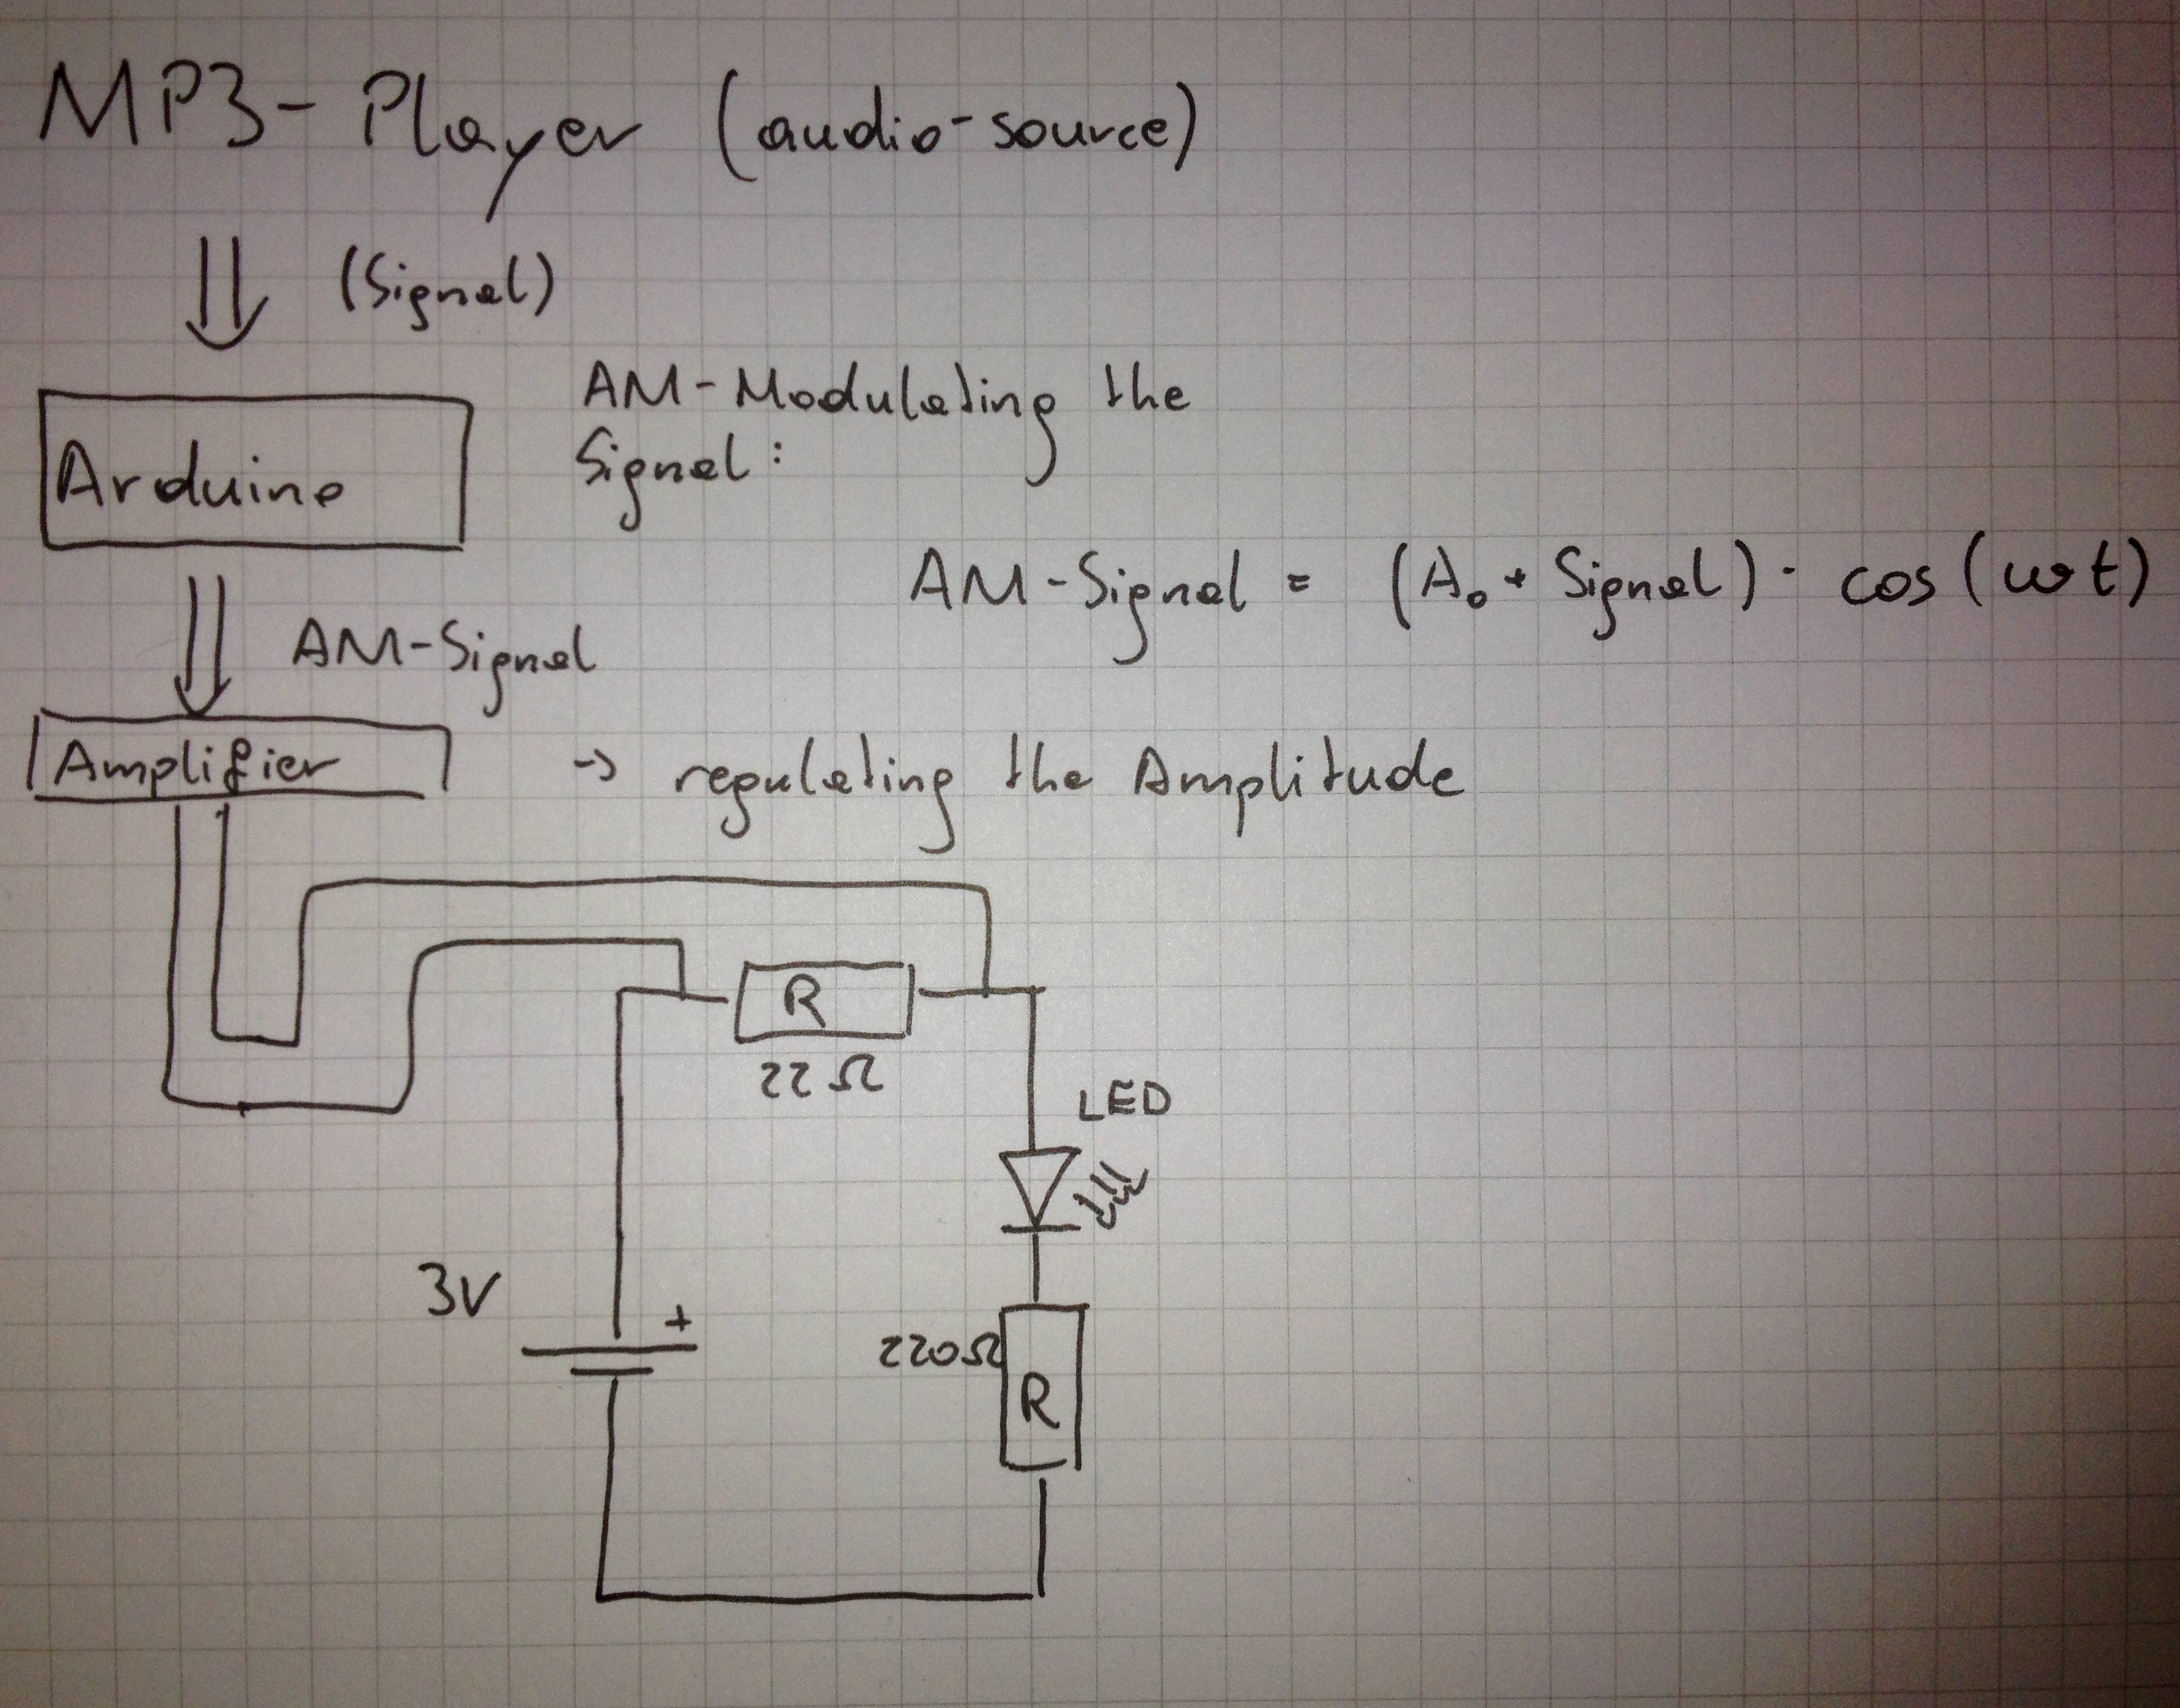 MP3-Player (audio-source)
(Signal)
AM-Modulating the
Signal:
Arduino
AM-Signal = (A₀ + Signal) · cos(ωt)
AM-Signal
Amplifier → regulating the Amplitude
R
22Ω
LED
3V
+
220Ω
R